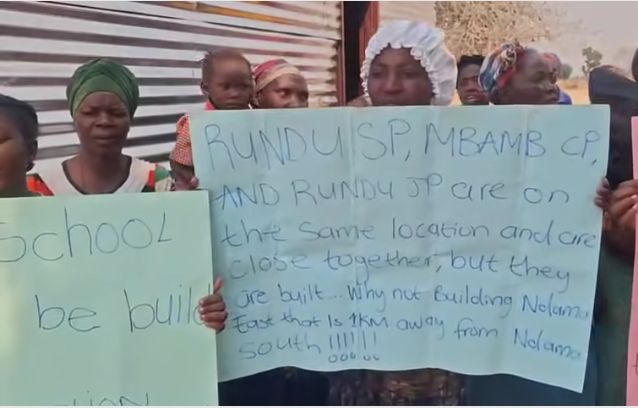 School
be build
RUNDU SP, MBAMB CP,
AND RUNDU JP are on
the same location and are
close together, but they
are built... Why not Building Ndama
East that Is 1KM away from Ndama
South !!!!!!